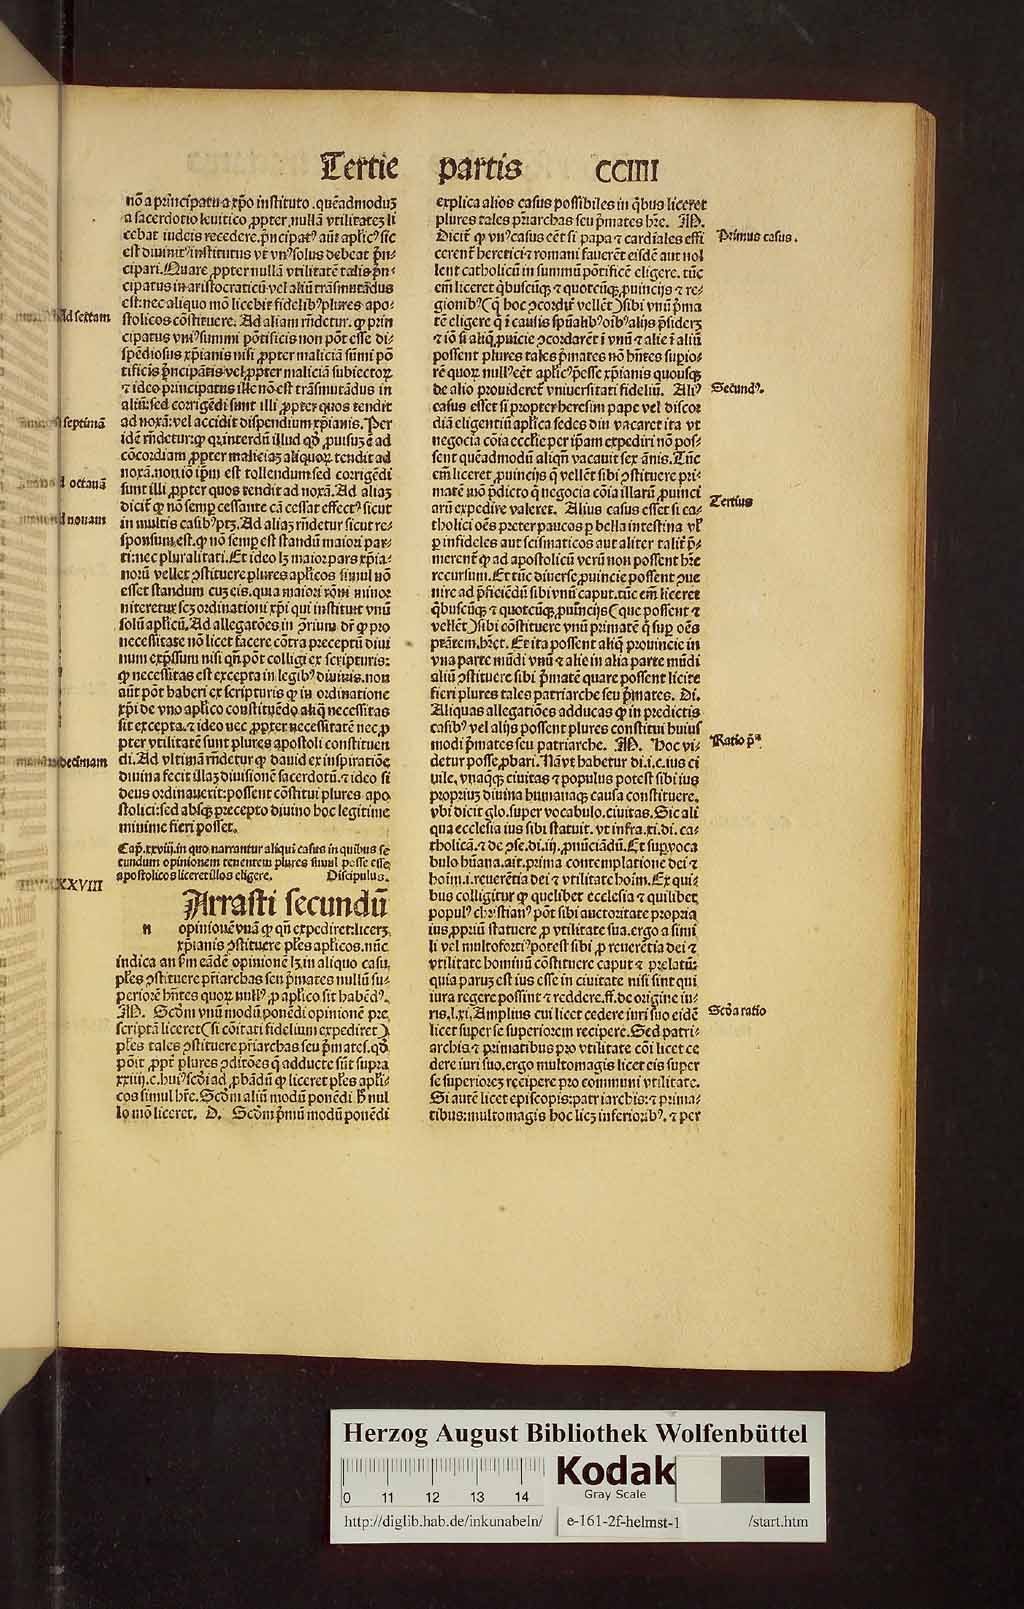 Tertie partis CCIIII
nō a principatu a xp̄o instituto .quēadmoduʒ
a sacerdotio leuitico ꝓpter nullā vtilitateʒ li
cebat iudeis recedere. p̄ncipatꝰ aūt apl̓icꝰ sic
est diuinitꝰ institutus vt vnꝰ solus debeat p̄n⸗
cipari. Quare ꝓpter nullā vtilitatē talis p̄n⸗
cipatus in aristocraticū vel aliū trāsmutādus
est: nec aliquo mō licebit fidelibꝰ plures apo⸗
stolicos cōstituere. Ad aliam rn̄detur. ꝙ prin
cipatus vniꝰ summi pōtificis non pōt esse di⸗
spēdiosus xp̄ianis nisi ꝓpter maliciā sūmi pō
tificis p̄ncipātis vel ꝓpter maliciā subiectoꝝ
⁊ ideo principatus ille nō est trāsmutādus in
aliū: sed corrigēdi sunt illi ꝓpter quos tendit
ad noxā: vel accidit dispendium xp̄ianis. Per
idē rn̄detur: ꝙ qn̄ interdū illud qd̓ ꝓuisuʒ ē ad
cōcordiam ꝓpter maliciaʒ aliquoꝝ tendit ad
noxā. non iō ip̄m est tollendum sed corrigēdi
sunt illi ꝓpter quos tendit ad noxā. Ad aliaʒ
dicit̄ ꝙ nō semꝑ cessante cā cessat effectꝰ sicut
in multis casibꝰ ptʒ. Ad aliaʒ rn̄detur sicut re⸗
sponsum est. ꝙ nō semꝑ est standū maiori par⸗
ti: nec pluralitati. Et ideo lʒ maior pars xp̄ia⸗
noꝝ vellet ꝯstituere plures apl̓icos simul nō
esset standum cuʒ eis. quia maiori
niteretur scʒ ordinationi xp̄i qui instituit vnū
solū apl̓icū. Ad allegatōes in ꝯrium dr̄ ꝙ pro
necessitate nō licet facere cōtra preceptū diui
num exp̄ssum nisi qn̄ pōt colligi ex scripturis:
ꝙ necessitas est excepta in legibꝰ diuinis. non
aūt pōt haberi ex scripturis ꝙ in ordinatione
xp̄i de vno apl̓ico constituēdo aliq̄ necessitas
sit excepta. ⁊ ideo nec ꝓpter necessitatē nec ꝓ
pter vtilitatē sunt plures apostoli constituen
di. Ad vltimā rn̄detur ꝙ dauid ex inspiratiōe
diuina fecit illaʒ diuisionē sacerdotū. ⁊ ideo si
deus ordinauerit: possent cōstitui plures apo
stolici: sed absqꝫ precepto diuino hoc legitime
minime fieri posset.
Cap̄. xxviij. in quo narrantur aliqui casus in quibus se
cundum opinionem tenentem plures simul posse esse
apostolicos liceret illos eligere. Discipulus.
Arrasti secundū
n opinionē vnā ꝙ qn̄ expediret: licerʒ
xp̄ianis ꝯstituere pl̓es apl̓icos. nūc
indica an sm̄ eādē opinionē lʒ in aliquo casu
pl̓es ꝯstituere pr̄iarchas seu p̄mates nullū su⸗
periorē hn̄tes quoꝝ nullꝰ ꝓ apl̓ico sit habēdꝰ.
M. Scd̓m vnū modū ponēdi opinionē pre
scriptā liceret (si cōitati fidelium expediret)
pl̓es tales ꝯstituere pr̄iarchas seu p̄mates. qd̓
pōit ꝓpt̄ plures ꝯditōes q̄ adducte sūt supra
xxiij. c. huiꝰ scd̓i ad ꝓbādū ꝙ liceret pl̓es apl̓i⸗
cos simul hr̄e. Scd̓m aliū modū ponēdi h̓ nul
lo mō liceret. D. Scd̓m p̄mū modū ponēdi
explica alios casus possibiles in q̄bus liceret
plures tales pr̄iarchas seu p̄mates hr̄e. M.
Dicit̄ ꝙ vnꝰ casus eēt si papa ⁊ cardiales effi
cerent̄ heretici ⁊ romani fauerēt eisdē aut nol
lent catholicū in summū pōtificē eligere. tūc
em̄ liceret q̄buscūqꝫ ⁊ quotcūqꝫ ꝓuincijs ⁊ re⸗
gionibꝰ (q̄ hoc ꝯcordit̓ vellēt) sibi vnū p̄ma
tē eligere q̄ ī causis spūalibꝰ oībꝰ alijs p̄siderʒ
⁊ iō si aliq̄ ꝓuīcie ꝯcordarēt ī vnū ⁊ alie ī aliū
possent plures tales p̄mates nō hn̄tes supio⸗
rē quoꝝ nullꝰ eēt apl̓icꝰ p̄esse xp̄ianis quousqꝫ
de alio prouideret̄ vniuersitati fideliū. Aliꝰ
casus esset si propter heresim pape vel discor
diā eligentiū apl̓ica sedes diu vacaret ita vt
negocia cōia eccl̓ie per ip̄am expediri nō pos⸗
sent quēadmodū aliqn̄ vacauit sex ānis. Tūc
em̄ liceret ꝓuincijs q̄ vellēt sibi ꝯstituere pri⸗
matē mō p̄dicto q̄ negocia cōia illarū ꝓuinci
arū expedire valeret. Alius casus esset si ca⸗
tholici oēs preter paucos ꝑ bella intestina vl̓
ꝑ infideles aut scismaticos aut aliter talit̓ p̄⸗
merent̄ ꝙ ad apostolicū verū non possent hr̄e
recursum. Et tūc diuerse ꝓuincie possent ꝯue
nire ad p̄ficiēdū sibi vnū caput. tūc em̄ liceret
q̄buscūqꝫ ⁊ quotcūqꝫ ꝓuīncijs (que possent ⁊
vellēt) sibi cōstituere vnū primatē q̄ suꝑ oēs
ptātem hr̄et. Et ita possent aliq̄ prouincie in
vna parte mūdi vnū ⁊ alie in alia parte mūdi
aliū ꝯstituere sibi p̄matē quare possent licite
fieri plures tales patriarche seu p̄mates. Di.
Aliquas allegatiōes adducas ꝙ in predictis
casibꝰ vel alijs possent plures constitui huius
modi p̄mates seu patriarche. M. Hoc vi⸗
detur posse ꝓbari. Nā vt habetur di. i. c. ius ci
uile. vnaq̄qꝫ ciuitas ⁊ populus potest sibi ius
propriuʒ diuina humanaqꝫ causa constituere.
vbi dicit glo. super vocabulo. ciuitas. Sic ali
qua ecclesia ius sibi statuit. vt infra. xi. di. ca⸗
tholicā. ⁊ de ꝯse. di. iij. ꝓnūciādū. Et sup̱ voca
bulo hūana. ait. prima contemplatione dei ⁊
hoīm. i. reuerētia dei ⁊ vtilitate hoīm. Ex qui⸗
bus colligitur ꝙ quelibet ecclesia ⁊ quilibet
populꝰ christianꝰ pōt sibi auctoritate propria
ius ꝓpriū statuere ꝓ vtilitate sua. ergo a simi
li vel multofortiꝰ potest sibi ꝓ reuerētia dei ⁊
vtilitate hominū cōstituere caput ⁊ prelatū:
quia paruʒ est ius esse in ciuitate nisi sint qui
iura regere possint ⁊ reddere. ff. de origine iu⸗
ris. l. xi. Amplius cui licet cedere iuri suo eidē
licet super se superiorem recipere. Sed patri⸗
archis ⁊ primatibus pro vtilitate cōi licet ce
dere iuri suo. ergo multomagis licet eis super
se superiorez recipere pro communi vtilitate.
Si autē licet episcopis: patriarchis: ⁊ prima⸗
tibus: multomagis hoc licʒ inferioribꝰ. ⁊ per
Ad sextam
septimā
d octauā
d nouam
decimam
XXVIII
Primus casus.
Secundꝰ.
Tertius
Ratio p̄ᵃ
Scd̓a ratio
Herzog August Bibliothek Wolfenbüttel
0 11 12 13 14
Kodak
Gray Scale
http://diglib.hab.de/inkunabeln/ e-161-2f-helmst-1 /start.htm